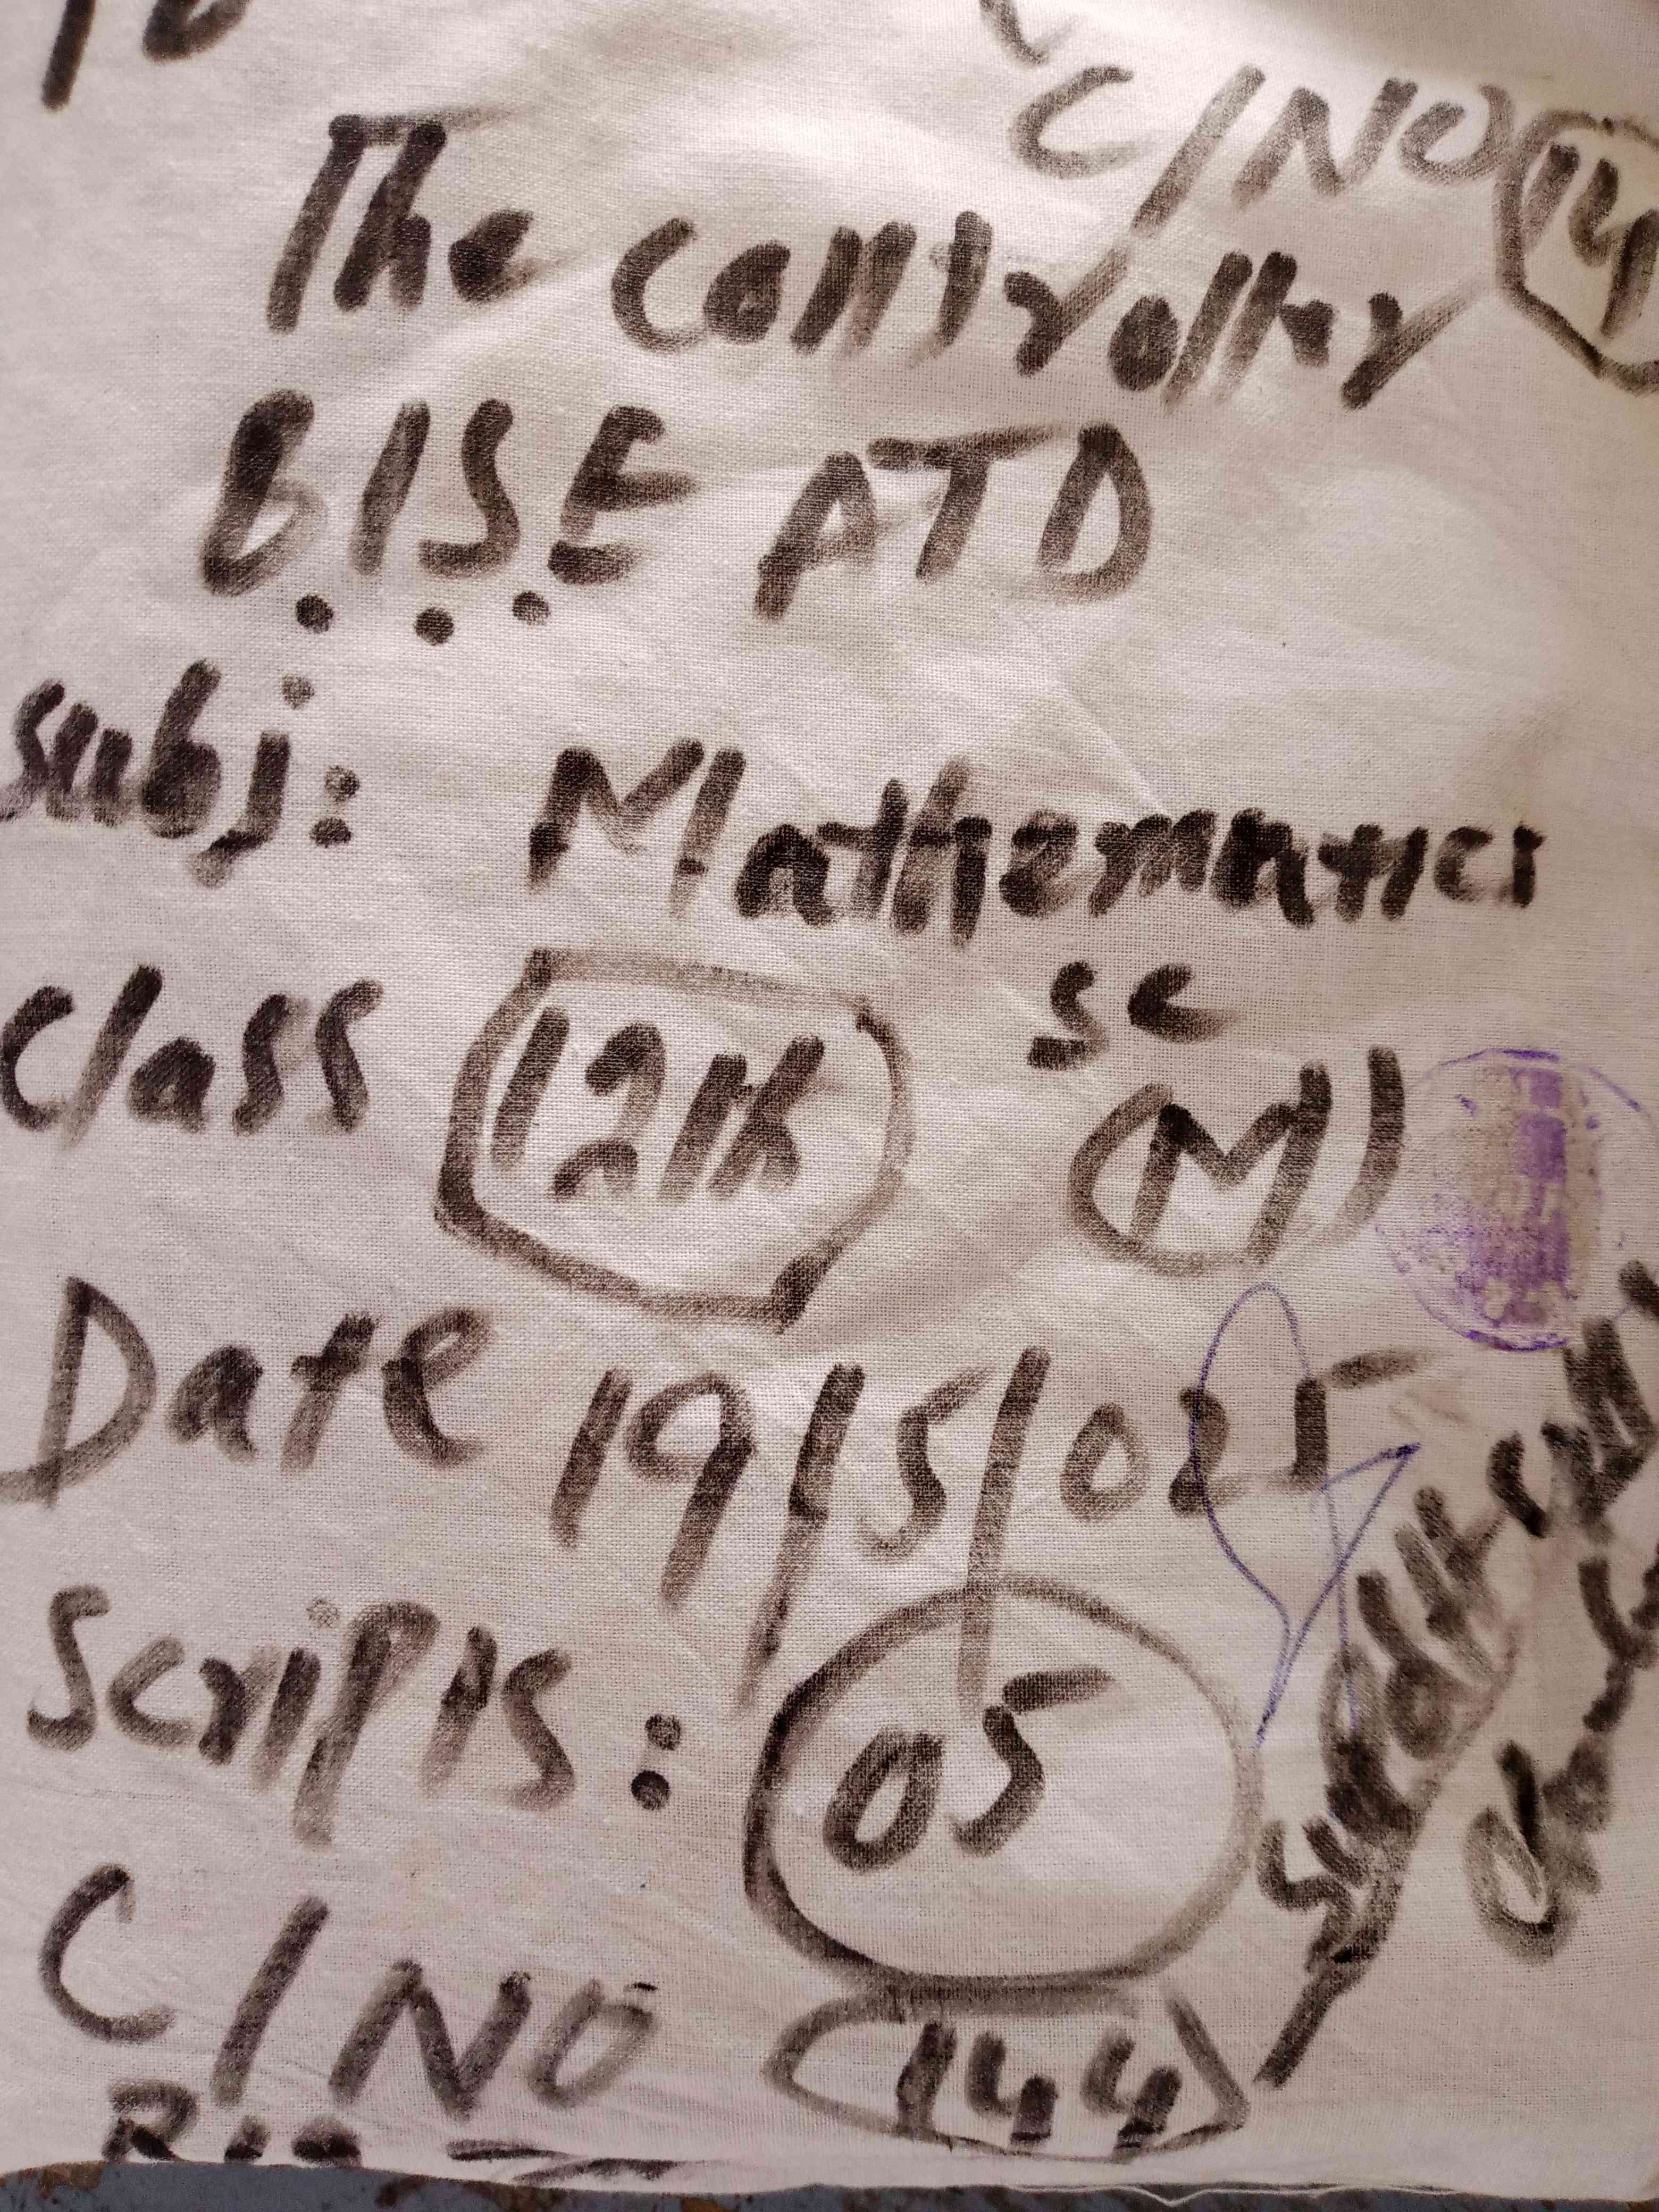 To
C/NO 14
The controller
BISE ATD
Subj: Mathematics
Class 12th SC
(M)
Date 19/5/025
Scripts: 05
C/NO 144